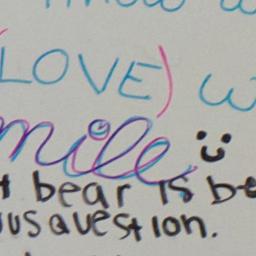 LOVE) w
mile
t bear is be
us question.